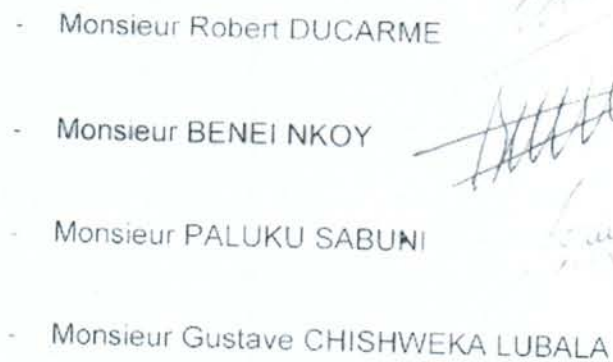 - Monsieur Robert DUCARME
- Monsieur BENEI NKOY
- Monsieur PALUKU SABUNI
- Monsieur Gustave CHISHWEKA LUBALA